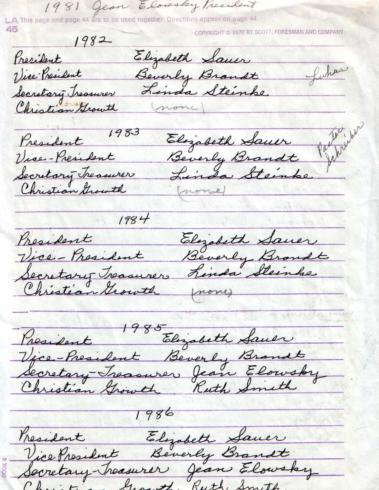 1981 Jean Elowsky President
LA This page and page 44 are to be used together. Directions appear on page 44.
45
COPYRIGHT © 1972 BY SCOTT, FORESMAN AND COMPANY
1982
President Elizabeth Sauer
Vice-President Beverly Brandt
Secretary Treasurer Linda Steinke
Christian Growth (none)
Lukas
1983
President Elizabeth Sauer
Vice-President Beverly Brandt
Secretary-Treasurer Linda Steinke
Christian Growth (none)
Pastor
Schreiber
1984
President Elizabeth Sauer
Vice-President Beverly Brandt
Secretary-Treasurer Linda Steinke
Christian Growth (none)
1985
President Elizabeth Sauer
Vice-President Beverly Brandt
Secretary-Treasurer Jean Elowsky
Christian Growth Ruth Smith
1986
President Elizabeth Sauer
Vice President Beverly Brandt
Secretary-Treasurer Jean Elowsky
Christian Growth Ruth Smith